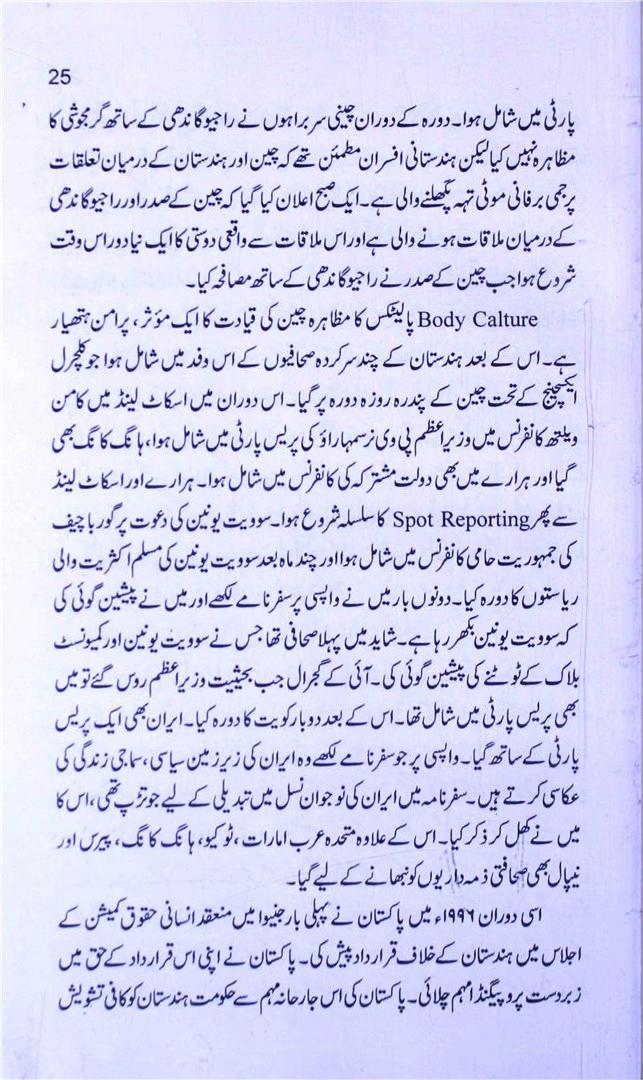 25
پارٹی میں شامل ہوا۔ دورہ کے دوران چینی سربراہوں نے راجیو گاندھی کے ساتھ گرمجوشی کا
مظاہرہ نہیں کیا لیکن ہندستانی افسران مطمئن تھے کہ چین اور ہندستان کے درمیان تعلقات
پر جمی برفانی موٹی تہہ پگھلنے والی ہے۔ ایک صبح اعلان کیا گیا کہ چین کے صدر اور راجیو گاندھی
کے درمیان ملاقات ہونے والی ہے اور اس ملاقات سے واقعی دوستی کا ایک نیا دور اس وقت
شروع ہوا جب چین کے صدر نے راجیو گاندھی کے ساتھ مصافحہ کیا۔
Body Calture پالیٹکس کا مظاہرہ چین کی قیادت کا ایک مؤثر، پرامن ہتھیار
ہے۔ اس کے بعد ہندستان کے چند سرکردہ صحافیوں کے اس وفد میں شامل ہوا جو کلچرل
ایکسچینج کے تحت چین کے پندرہ روزہ دورہ پر گیا۔ اس دوران میں اسکاٹ لینڈ میں کامن
ویلتھ کانفرنس میں وزیراعظم پی وی نرسمہاراؤ کی پریس پارٹی میں شامل ہوا، ہانگ کانگ بھی
گیا اور ہرارے میں بھی دولت مشترکہ کی کانفرنس میں شامل ہوا۔ ہرارے اور اسکاٹ لینڈ
سے پھر Spot Reporting کا سلسلہ شروع ہوا۔ سوویت یونین کی دعوت پر گورباچیف
کی جمہوریت حامی کانفرنس میں شامل ہوا اور چند ماہ بعد سوویت یونین کی مسلم اکثریت والی
ریاستوں کا دورہ کیا۔ دونوں بار میں نے واپسی پر سفرنامے لکھے اور میں نے پیشین گوئی کی
کہ سوویت یونین بکھر رہا ہے۔ شاید میں پہلا صحافی تھا جس نے سوویت یونین اور کمیونسٹ
بلاک کے ٹوٹنے کی پیشین گوئی کی۔ آئی کے گجرال جب بحیثیت وزیراعظم روس گئے تو میں
بھی پریس پارٹی میں شامل تھا۔ اس کے بعد دو بار کویت کا دورہ کیا۔ ایران بھی ایک پریس
پارٹی کے ساتھ گیا۔ واپسی پر جو سفرنامے لکھے وہ ایران کی زیر زمین سیاسی، سماجی زندگی کی
عکاسی کرتے ہیں۔ سفرنامہ میں ایران کی نوجوان نسل میں تبدیلی کے لیے جو تڑپ تھی، اس کا
میں نے کھل کر ذکر کیا۔ اس کے علاوہ متحدہ عرب امارات، ٹوکیو، ہانگ کانگ، پیرس اور
نیپال بھی صحافتی ذمہ داریوں کو نبھانے کے لیے گیا۔
اسی دوران ۱۹۹۶ء میں پاکستان نے پہلی بار جنیوا میں منعقد انسانی حقوق کمیشن کے
اجلاس میں ہندستان کے خلاف قرارداد پیش کی۔ پاکستان نے اپنی اس قرارداد کے حق میں
زبردست پروپیگنڈا مہم چلائی۔ پاکستان کی اس جارحانہ مہم سے حکومت ہندستان کو کافی تشویش